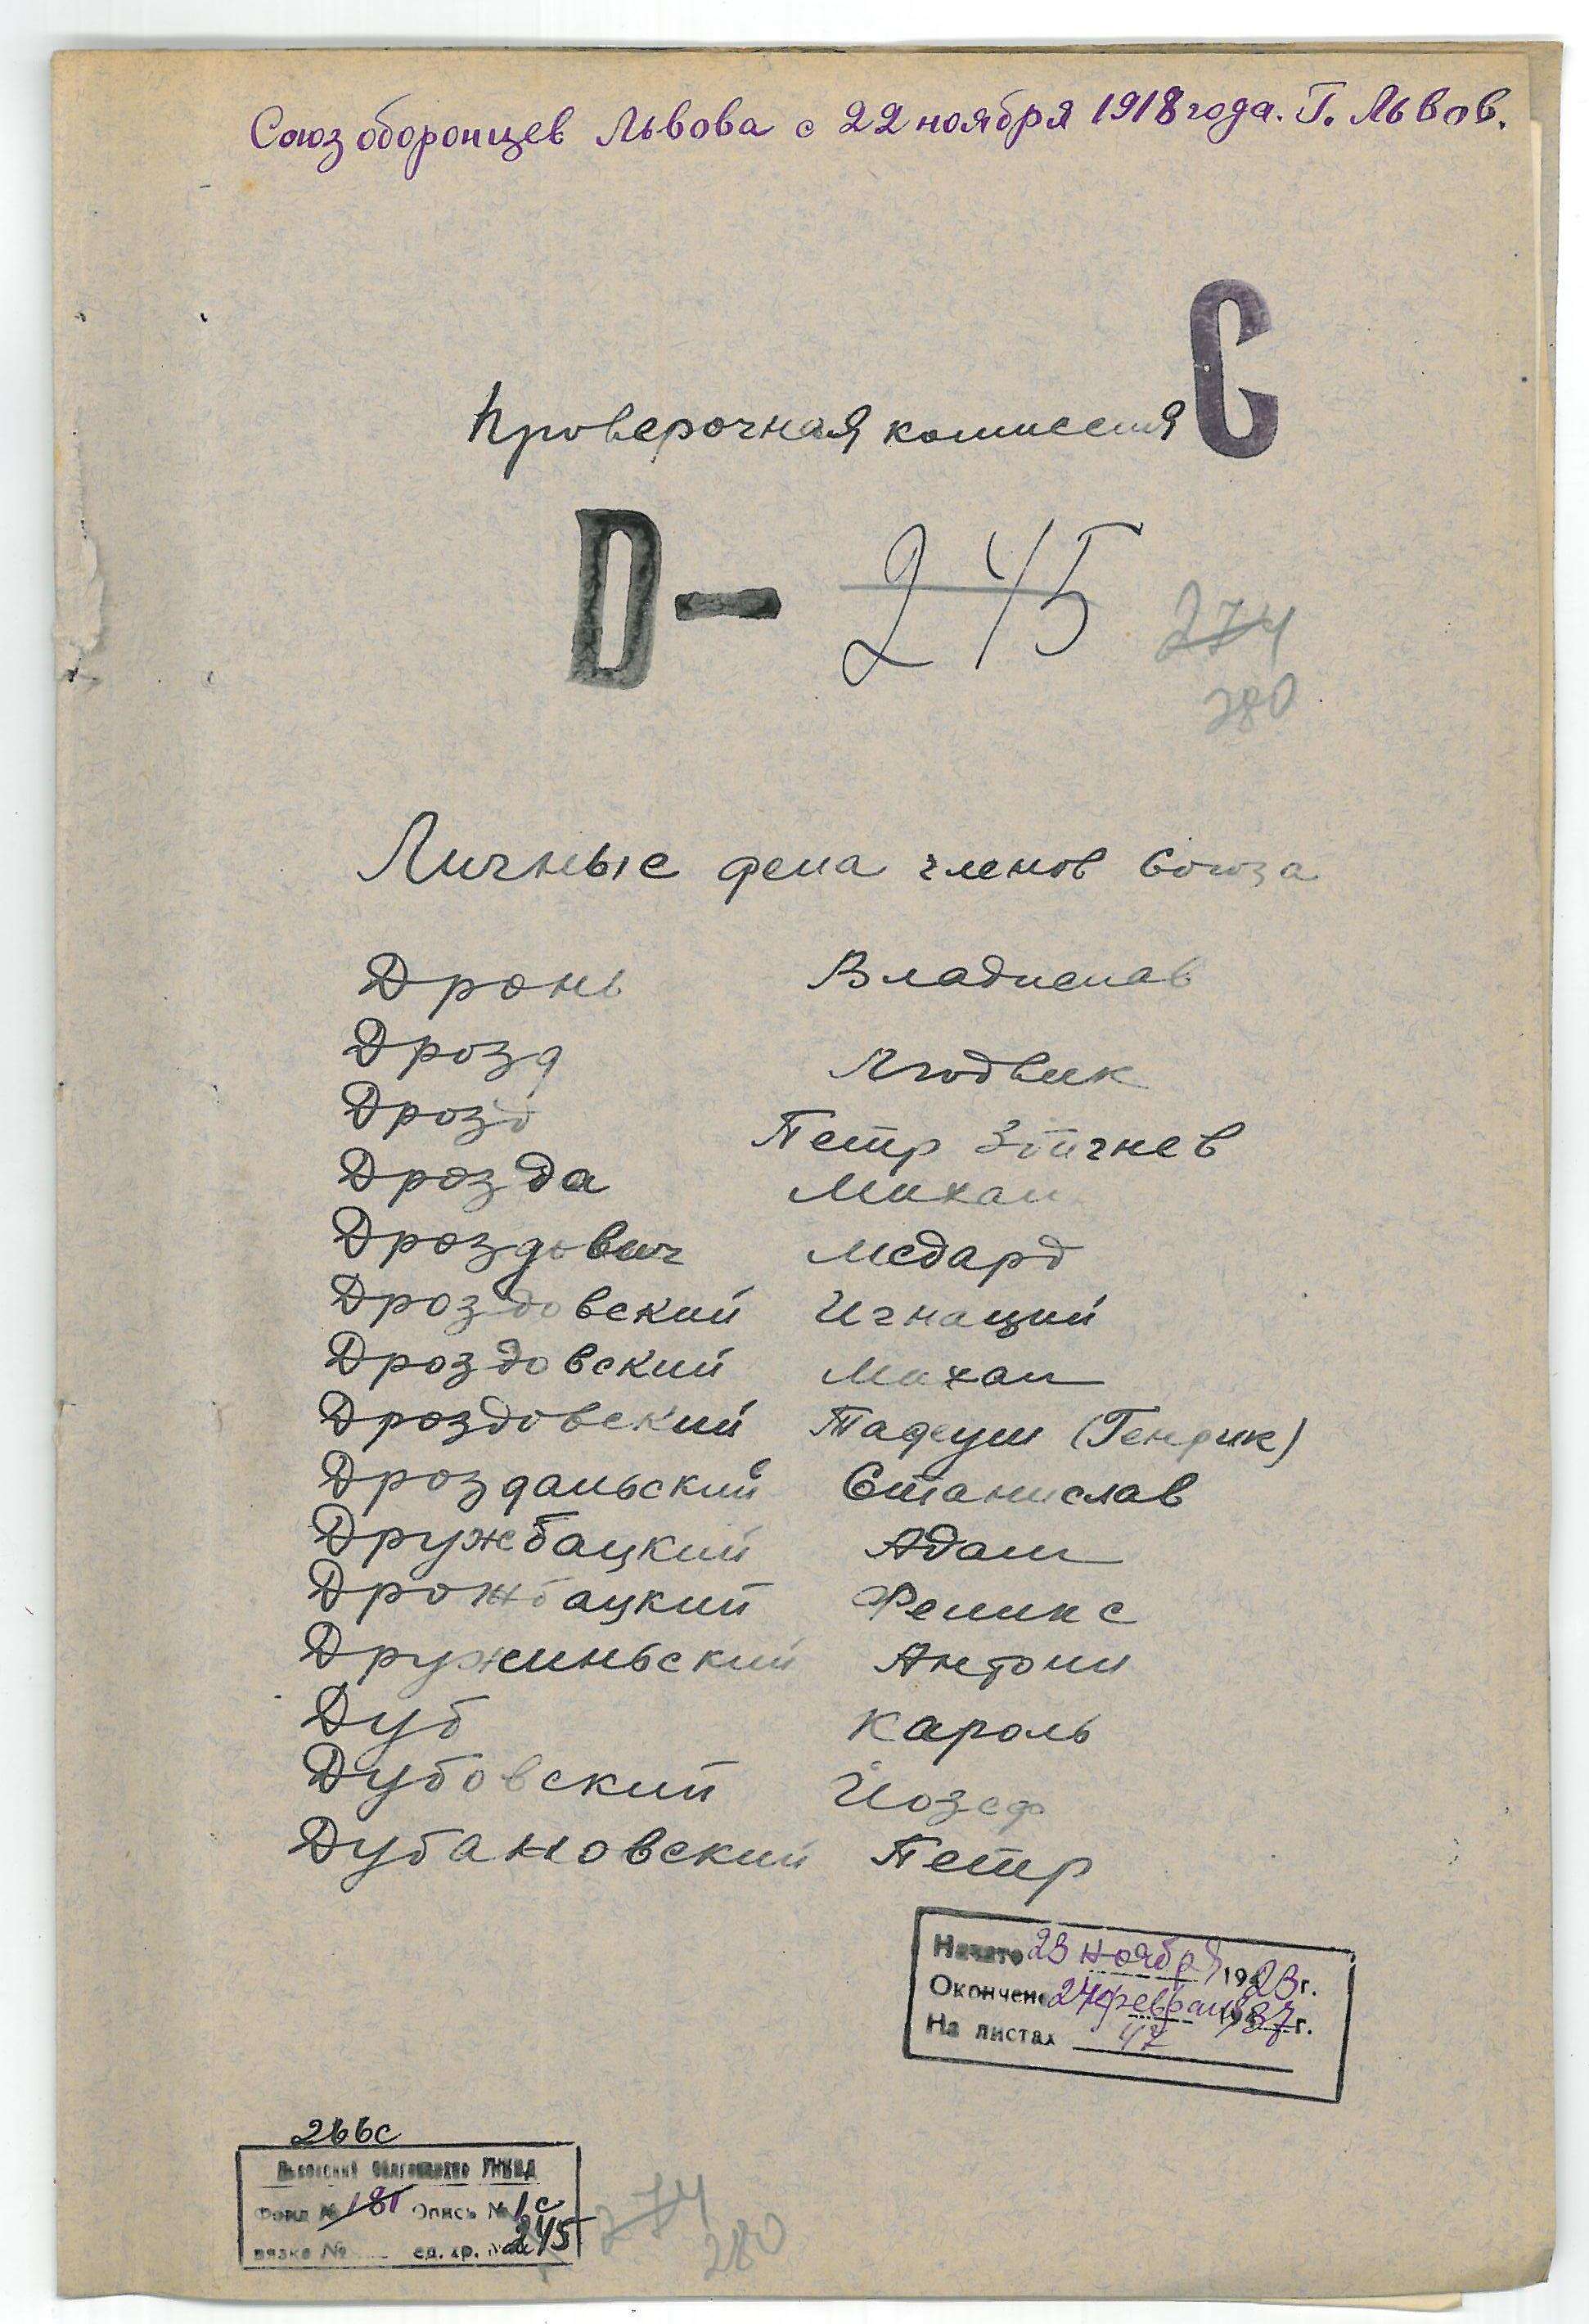 Союз оборонцев Львова с 22 ноября 1918 года. Г. Львов.
С
Проверочная комиссия
D- 245 274
280
Личные дела членов Союза
Дронь Владислав
Дрозд Людвик
Дрозд Петр Збигнев
Дрозда Михал
Дроздович Медард
Дроздовский Игнаций
Дроздовский Михал
Дроздовский Тадеуш (Генрик)
Дроздальский Станислав
Дружбацкий Адам
Дрожбацкий Феликс
Дружиньский Антони
Дуб Кароль
Дубовский Йозеф
Дубановский Петр
Начато 23 ноября 1923 г.
Окончено 24 февраля 1937 г.
На листах 47
266с
Львовский Облгосархив УНКВД
Фонд № 181 Опись № 1с
вязка № ед. хр. № 245
274
280